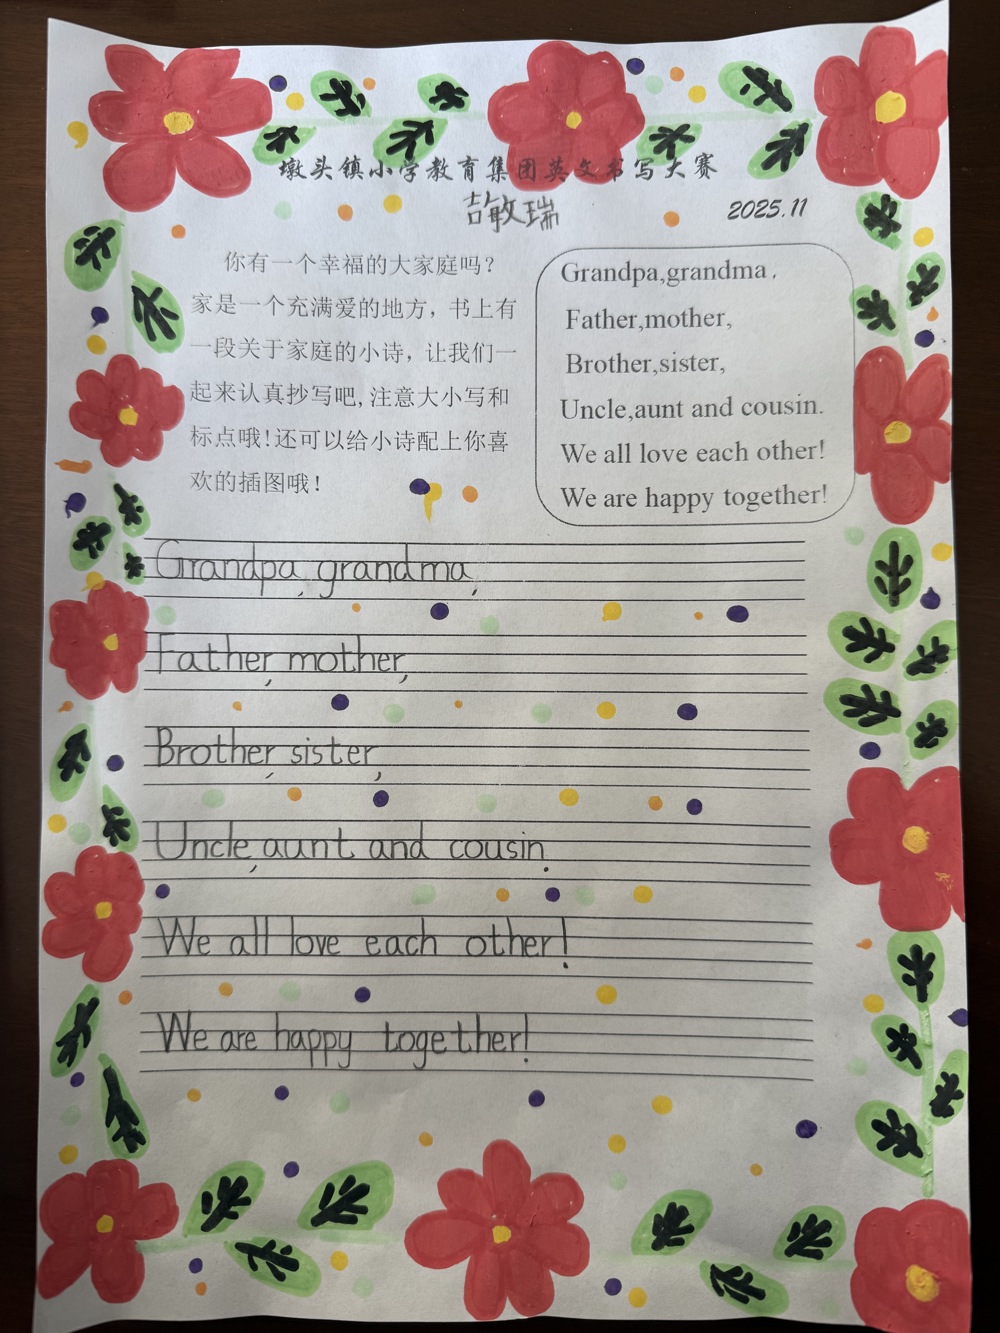 墩头镇小学教育集团英文书写大赛
吉敏瑞
2025.11
你有一个幸福的大家庭吗？
家是一个充满爱的地方，书上有
一段关于家庭的小诗，让我们一
起来认真抄写吧,注意大小写和
标点哦！还可以给小诗配上你喜
欢的插图哦！
Grandpa,grandma,
Father,mother,
Brother,sister,
Uncle,aunt and cousin.
We all love each other!
We are happy together!
Grandpa, grandma,
Father, mother,
Brother, sister,
Uncle, aunt and cousin.
We all love each other!
We are happy together!